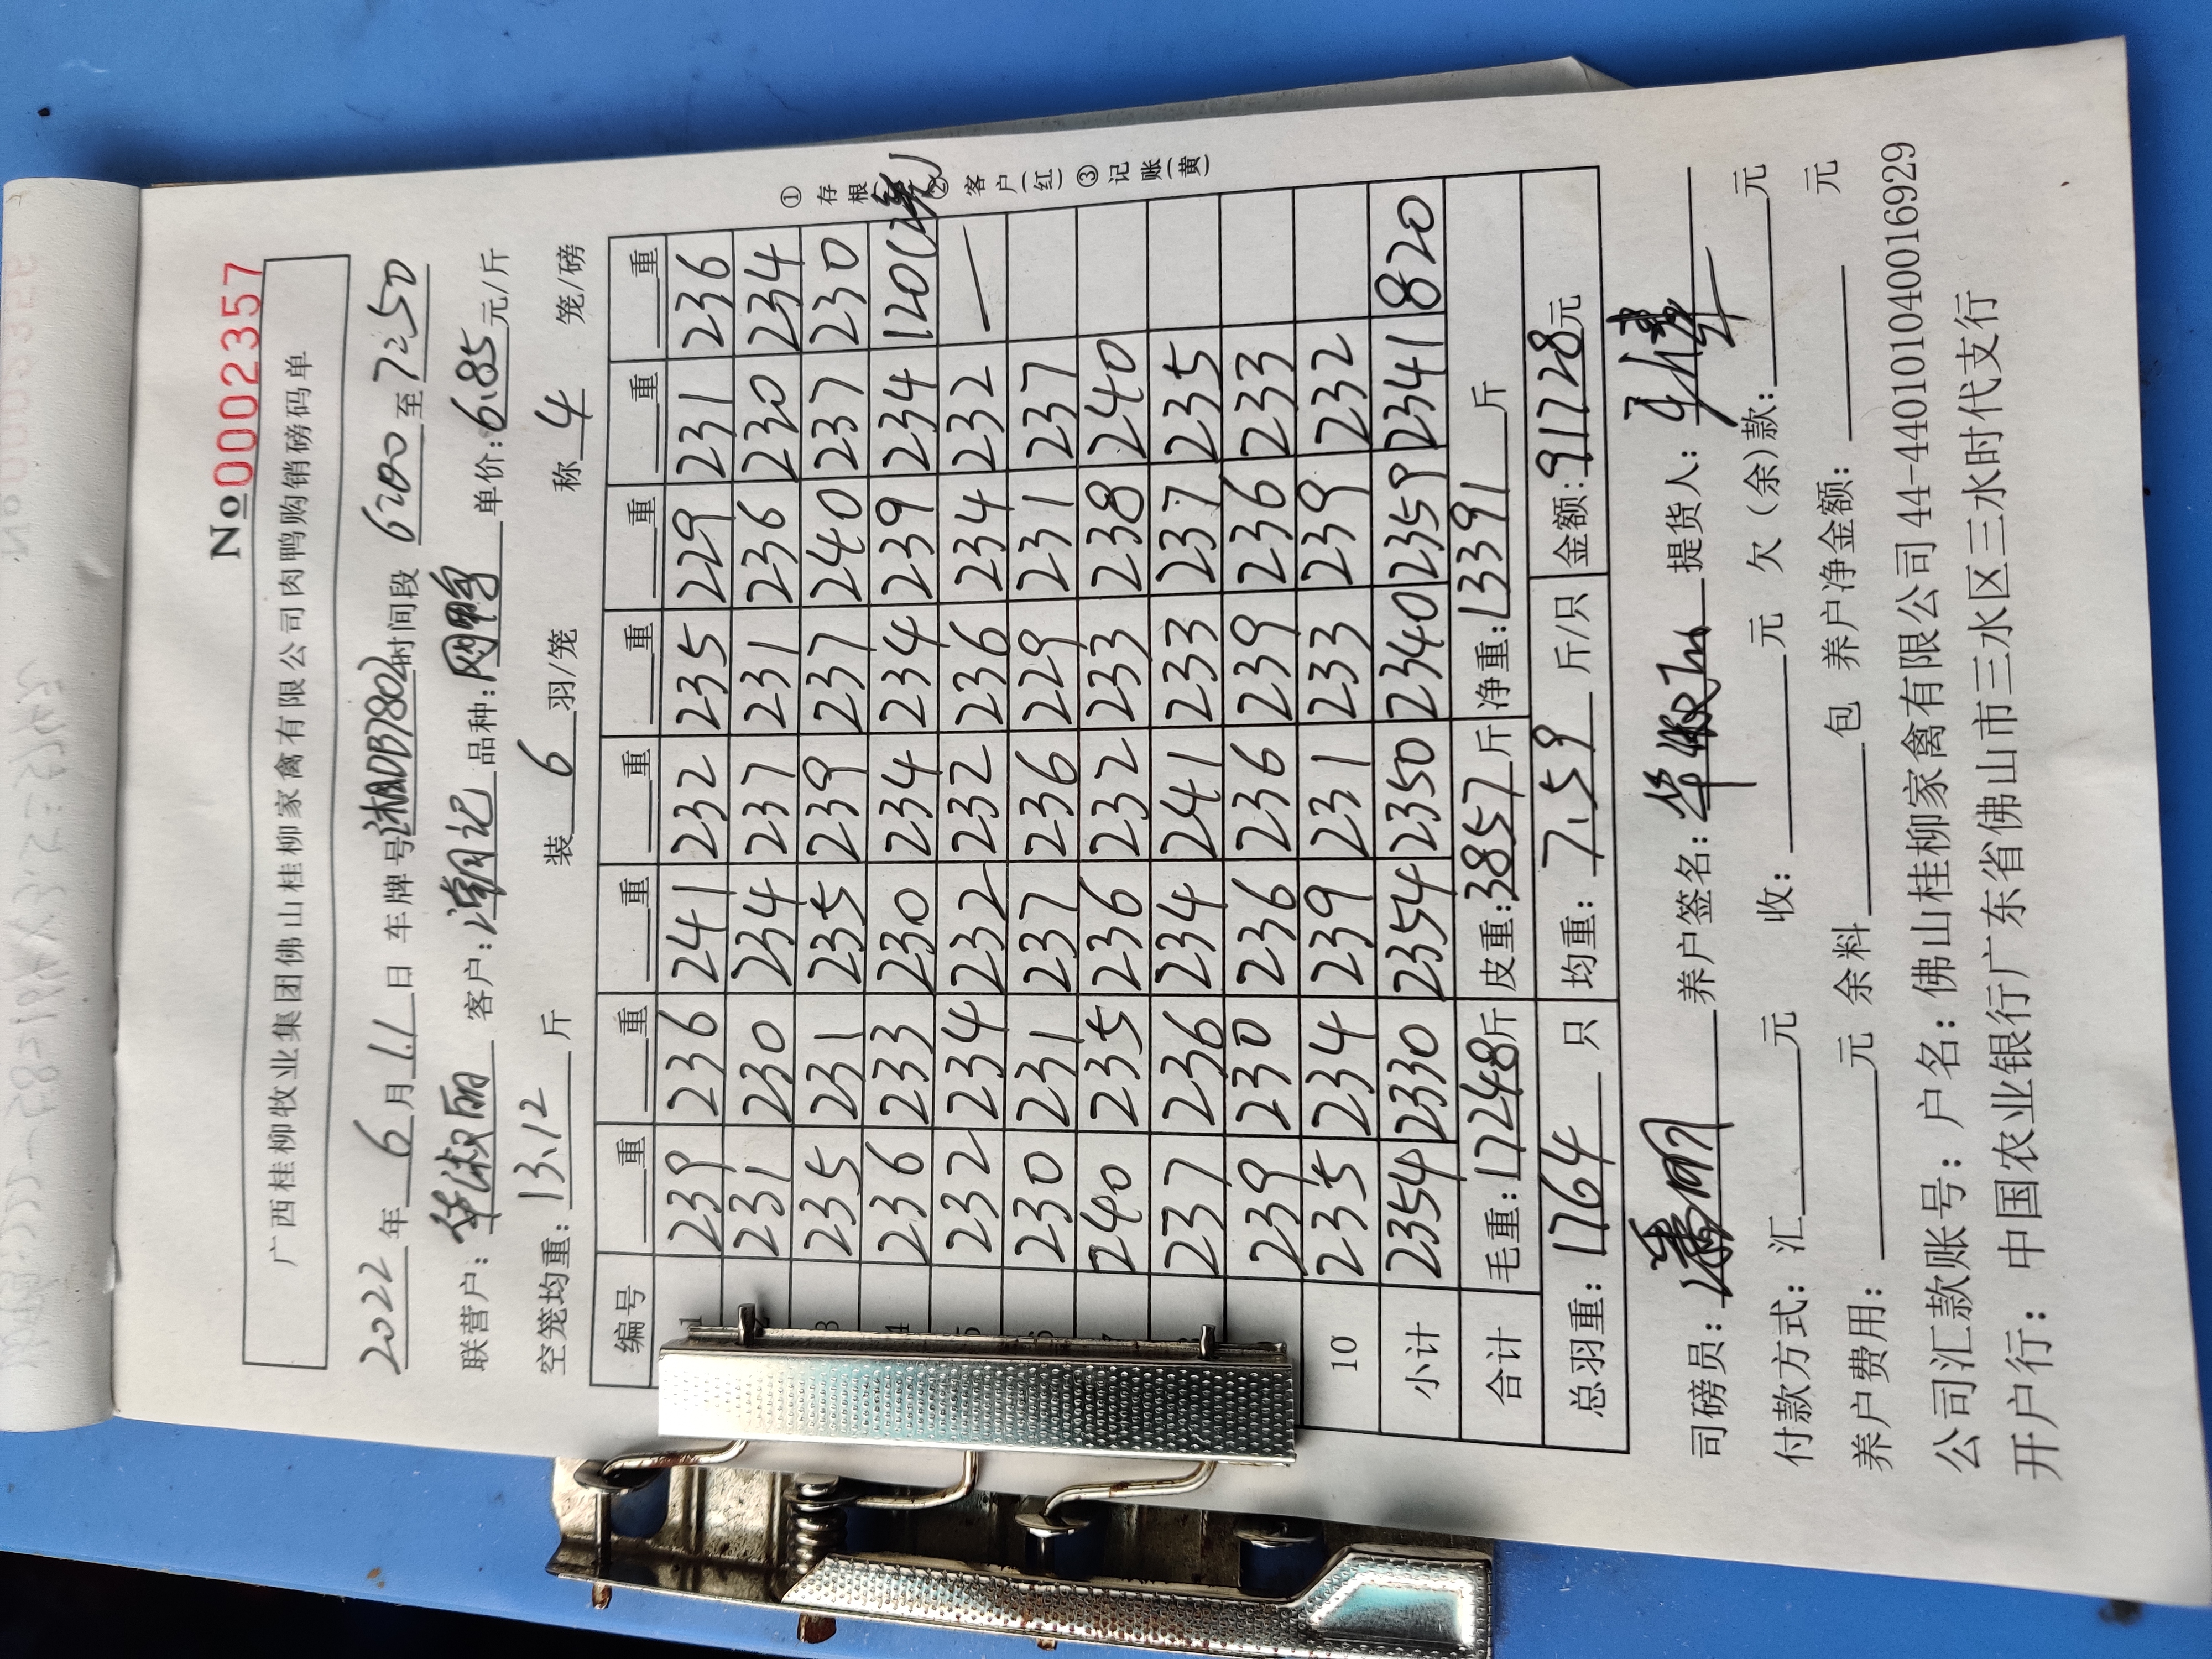 №0002357
广西桂柳牧业集团佛山桂柳家禽有限公司肉鸭购销磅码单
2022年6月11日 车牌号湘ADB7802时间段6:00至7:50
联营户:华淑丽 客户:潮记 品种:网鸭 单价:6.85元/斤
空笼均重:13.12斤 装6羽/笼 称4笼/磅
编号 重 重 重 重 重 重 重 重
1 239 236 241 232 235 229 231 236
2 231 230 234 237 231 236 230 234
3 235 231 235 239 237 240 237 230
4 236 233 230 234 234 239 234 120(2笼)
5 232 234 232 232 236 234 232 —
6 230 231 237 236 229 231 237
240 235 236 232 233 238 240
237 236 234 241 233 237 235
239 230 236 236 239 236 233
10 235 234 239 231 233 239 232
小计 2354 2330 2354 2350 2340 2359 2341 820
合计 毛重:17248斤 皮重:3857斤 净重:13391斤
总羽重:1764只 均重:7.59斤/只 金额:91728元
司磅员: 养户签名:华淑丽 提货人:
付款方式:汇 元 收: 元 欠(余)款: 元
养户费用: 元 余料 包 养户净金额: 元
公司汇款账号:户名:佛山桂柳家禽有限公司44-440101040016929
开户行:中国农业银行广东省佛山市三水区三水时代支行
①存根 ②客户(红) ③记账(黄)